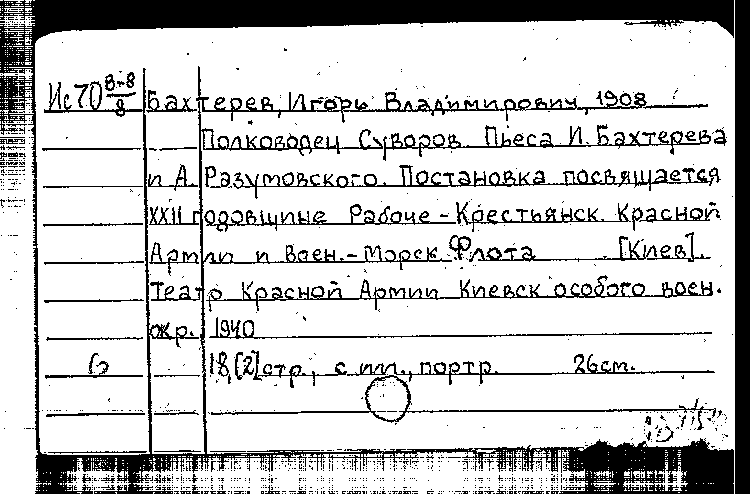 Ис70 8-8/8 Бахтерев, Игорь Владимирович, 1908
Полководец Суворов. Пьеса И. Бахтерева
и А. Разумовского. Постановка посвящается
XXII годовщине Рабоче-Крестьянск. Красной
Армии и Воен.-Морск. Флота [Киев].
Театр Красной Армии Киевск особого воен.
окр. 1940
6 18,[2]стр., с илл., портр. 26см.